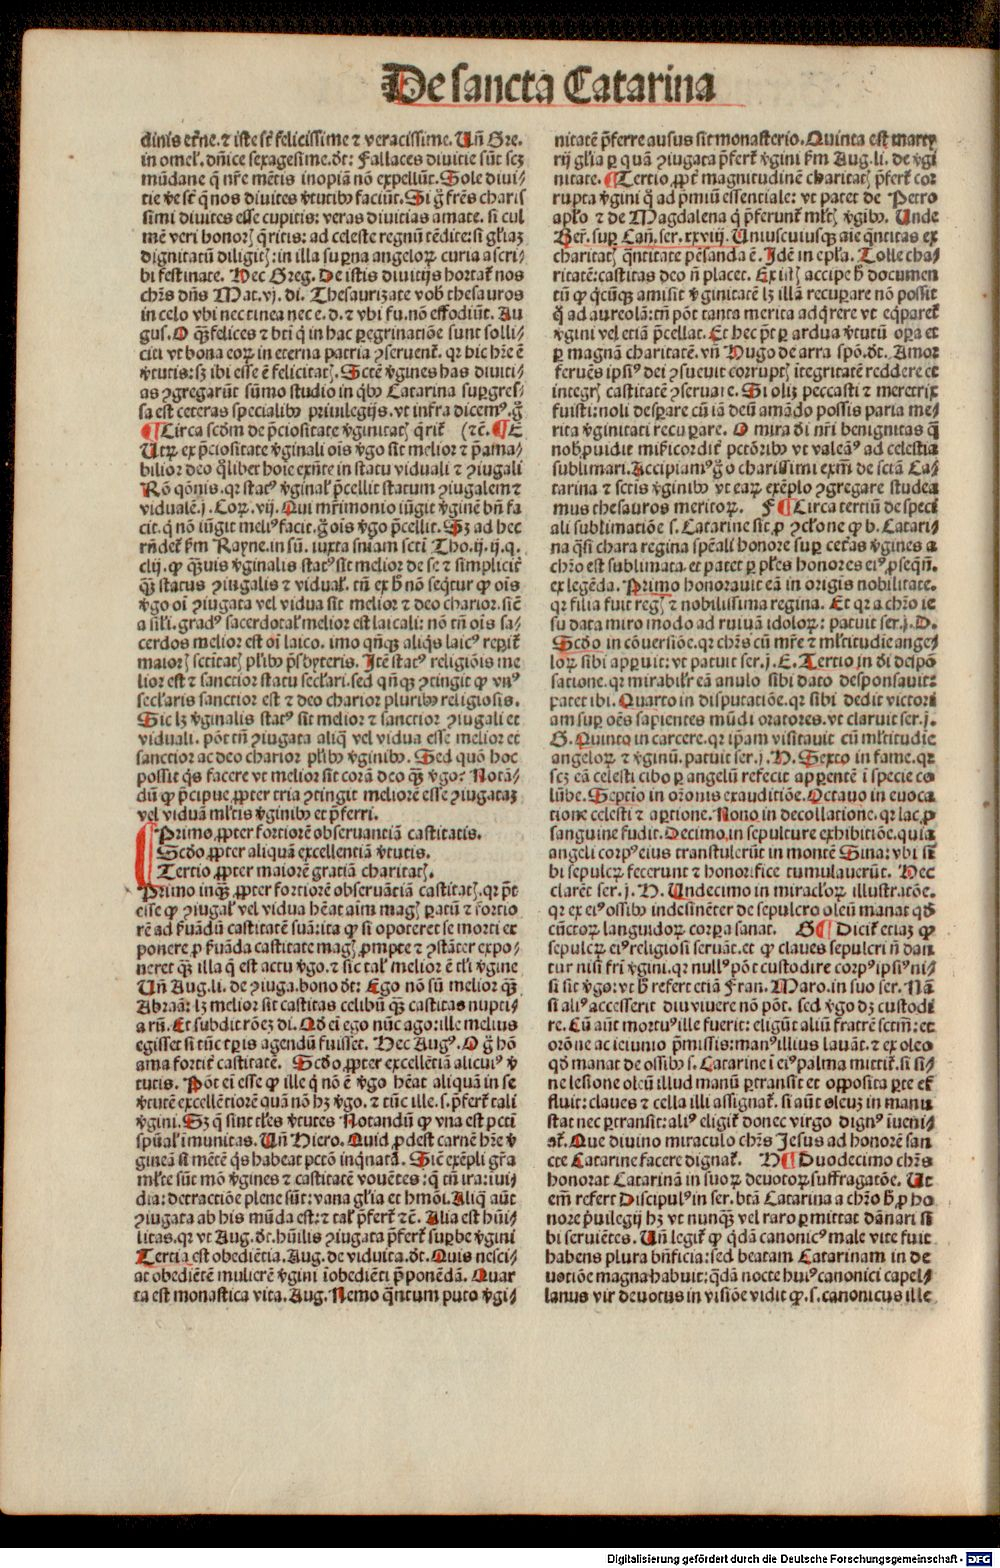 De sancta Catarina
dinis et̃ne. ⁊ iste st̃ felicissime ⁊ veracissime. Vñ Gre.
in omel. dñice sexagesime. dt: Fallaces diuitie sũt scꝫ
mũdane q̃ nr̃e mẽtis inopiã nõ expellũt. Sole diui⸗
tie ve st̃ q̃ nos diuites v̓tutibꝰ faciũt. Si g̃ fr̃es charis
simi diuites esse cupitis: veras diuitias amate. si cul
mẽ veri honorꝭ q̃ritis: ad celeste regnũ tẽdite: si gl̃iaꝫ
dignitatũ diligitꝭ: in illa suꝑna angeloꝝ curia ascri⸗
bi festinate. Hec Greg. De istis diuitijs hortat̃ nos
chr̃s dñs Mat. vj. di. Thesaurizate vob̃ thesauros
in celo vbi nec tinea nec e. d. ⁊ vbi fu. nõ effodiũt. Au
gus. O q̃ꝫ felices ⁊ bt̃i q̃ in hac ꝑegrinatiõe sunt solli⸗
citi vt bona eoꝝ in eterna patria ꝯseruent̃. qꝛ hic hr̃e ẽ
v̓tutis: sꝫ ibi esse ẽ felicitatꝭ. Sctẽ v̓gines has diuiti⸗
as ꝯgregarũt sũmo studio in q̓bꝰ Catarina suꝑgres⸗
sa est ceteras specialibꝰ priuilegijs. vt infra dicemꝰ. g̃
¶ Circa scd̃m de p̃ciositate v̓ginitatꝭ q̃rit̃ (⁊c̃. ¶ E
Utꝝ ex p̃ciositate v̓ginali oĩs v̓go sit melior ⁊ p̃ama⸗
bilior deo q̃libet hoĩe exñte in statu viduali ⁊ ꝯiugali
Rõ q̃onis. qꝛ statꝰ v̓ginal̃ p̃cellit statum ꝯiugalem ⁊
vidualẽ. j. Cor. vij. Qui mr̃imonio iũgit v̓ginẽ bñ fa
cit. q̃ nõ iũgit meliꝰ facit. g̃ oĩs v̓go p̃cellit. Sꝫ ad hec
rñdet̃ s̃m Rayne. in sũ. iuxta sñiam scti Tho. ij. ij. q.
clij. ꝙ q̃ꝫuis v̓ginalis statꝰ sit melior de se ⁊ simplicit̃
q̃ꝫ status ꝯiugalis ⁊ vidual̃. tñ ex h̃ nõ seq̃tur ꝙ oĩs
v̓go oĩ ꝯiugata vel vidua sit melior ⁊ deo charior. sic̃
a sil̃i. gradꝰ sacerdotal̃ melior est laicali: nõ tñ oĩs sa⸗
cerdos melior est oĩ laico. imo qñqꝫ aliq̃s laicꝰ reꝑit̃
maiorꝭ sctitatꝭ pl̃ibꝰ p̃sbyteris. Itẽ statꝰ religiõis me
lior est ⁊ sanctior statu secl̃ari. sed qñqꝫ ꝯtingit ꝙ vnꝰ
secl̃aris sanctior est ⁊ deo charior pluribꝰ religiosis.
Sic lꝫ v̓ginalis statꝰ sit melior ⁊ sanctior ꝯiugali et
viduali. põt tñ ꝯiugata aliq̃ vel vidua esse melior et
sanctior ac deo charior pl̃ibꝰ v̓ginibꝰ. Sed quõ hoc
possit q̃s facere vt melior sit corã deo q̃ꝫ v̓go? Notã⸗
dũ ꝙ p̃cipue ꝓpter tria ꝯtingit meliorẽ esse ꝯiugataꝫ
vel viduã ml̃tis v̓ginibꝰ et p̃ferri.
Primo ꝓpter fortiorẽ obseruantiã castitatis.
Scd̃o ꝓpter aliquã excellentiã v̓tutis.
Tertio ꝓpter maiorẽ gratiã charitatꝭ.
Primo inq̃ꝫ ꝓpter fortiorẽ obseruãtiã castitatꝭ. qꝛ p̃t
esse ꝙ ꝯiugal̃ vel vidua hẽat aĩm magꝭ ꝑatũ ⁊ fortio
rẽ ad s̓uãdũ castitatẽ suã: ita ꝙ si opoteret se morti ex
ponere ꝓ s̓uãda castitate magꝭ ꝓmpte ⁊ ꝯstãter expo⸗
neret q̃ꝫ illa q̃ est actu v̓go. ⁊ sic tal̃ melior ẽ tl̃i v̓gine
Vñ Aug. li. de ꝯiuga. bono dt: Ego nõ sũ melior q̃ꝫ
Abraã: lꝫ melior sit castitas celibũ q̃ꝫ castitas nupti⸗
arũ. Et subdit rõeꝫ di. Qd̃ eĩ ego nũc ago: ille melius
egisset si tũc tꝑis agendũ fuisset. Hec Augꝰ. O g̃ hõ
ama fortit̃ castitatẽ. Scd̃o ꝓpter excellẽtiã alicuiꝰ v̓
tutis. Põt eĩ esse ꝙ ille q̃ nõ ẽ v̓go hẽat aliquã in se
v̓tutẽ excellẽtiorẽ quã nõ hꝫ v̓go. ⁊ tũc ille. s. p̃fert̃ tali
v̓gini. Sꝫ q̃ sint tl̃es v̓tutes Notandũ ꝙ vna est pcti
spũal̃ imunitas. Vñ Hiero. Quid ꝓdest carnẽ hr̃e v̓
gineã si mẽtẽ q̃s habeat pctõ inq̃natã. Sic̃ exẽpli gr̃a
ml̃te sũt mõ v̓gines ⁊ castitatẽ vouẽtes: q̃ tñ ira: iui⸗
dia: detractiõe plene sũt: vana gl̃ia et hm̃oi. Aliq̃ aũt
ꝯiugata ab his mũda est: ⁊ tal̃ p̃fert̃ ⁊c̃. Alia est hũi⸗
litas. qꝛ vt Aug. dt. hũilis ꝯiugata p̃fert̃ suꝑbe v̓gini
Tertia est obediẽtia. Aug. de viduita. dt. Quis nesci⸗
at obediẽtẽ mulierẽ v̓gini iobediẽti p̃ponẽdã. Quar
ta est monastica vita. Aug. Nemo q̃ntum puto v̓gi⸗
nitatẽ p̃ferre ausus sit monasterio. Quinta est marty
rij gl̃ia ꝑ quã ꝯiugata p̃fert̃ v̓gini s̃m Aug. li. de v̓gi
nitate. ¶ Tertio ꝓpt̃ magnitudinẽ charitatꝭ p̃fert̃ cor
rupta v̓gini q̃ ad p̃miũ essentiale: vt patet de Petro
apl̃o ⁊ de Magdalena q̃ p̃ferunt̃ ml̃tꝭ v̓gibꝰ. Unde
Ber. suꝑ Cañ. ser. xxviij. Uniuscuiusqꝫ aĩe q̃ntitas ex
charitatꝭ q̃ntitate pẽsanda ẽ. Idẽ in epl̃a. Tolle cha⸗
ritatẽ: castitas deo ñ placet. Ex istꝭ accipe h̃ documen
tũ ꝙ q̃cũqꝫ amisit v̓ginitatẽ lꝫ illã recuꝑare nõ possit
q̃ ad aureolã: tñ põt tanta merita adq̃rere vt eq̃paret̃
v̓gini vel etiã p̃cellat. Et hec p̃t ꝑ ardua v̓tutũ oꝑa et
ꝑ magnã charitatẽ. vñ Hugo de arra spõ. dt. Amor
feruẽs ipsiꝰ dei ꝯsueuit corruptꝭ itegritatẽ reddere et
integrꝭ castitatẽ ꝯseruare. Si oliꝫ peccasti ⁊ meretrix
fuisti: noli desꝑare cũ iã deũ amãdo possis paria me⸗
rita v̓ginitati recuꝑare. O mira di nr̃i benignitas q̃
nob̃ ꝓuidit mĩcordit̃ pctõribꝰ vt valeãꝰ ad celestia
sublimari. Accipiamꝰ g̃o charissimi exm̃ de scĩã Ca⸗
tarina ⁊ sctis v̓ginibꝰ vt eaꝝ exẽplo ꝯgregare studea
mus thesauros meritoꝝ. F ¶ Circa tertiũ de speci
ali sublimatiõe s. Catarine sit ꝓ ꝯcl̃one ꝙ b. Catari⸗
na q̃si chara regina sp̃eali honore suꝑ cet̃as v̓gines a
chr̃o est sublimata. et patet ꝑ pl̃es honores eiꝰ ꝓseq̃ñ.
ex legẽda. Primo honorauit eã in origis nobilitate.
qꝛ filia fuit regꝭ ⁊ nobilissima regina. Et qꝛ a chr̃o ie
su data miro modo ad ruinã idoloꝝ: patuit ser. j. D.
Scd̃o in cõuersiõe. qꝛ chr̃s cũ mr̃e ⁊ ml̃titudie ange⸗
loꝝ sibi apꝑuit: vt patuit ser. j. E. Tertio in di despõ
satione. qꝛ mirabilr̃ eã anulo sibi dato desponsauit:
patet ibi. Quarto in disputatiõe. qꝛ sibi dedit victori
am suꝑ oẽs sapientes mũdi oratores. vt claruit ser. j.
G. Quinto in carcere. qꝛ ip̃am visitauit cũ ml̃titudie
angeloꝝ ⁊ v̓ginũ. patuit ser. j. H. Sexto in fame. qꝛ
scꝫ eã celesti cibo ꝑ angelũ refecit apꝑentẽ i specie co
lũbe. Septio in orõnis exauditiõe. Octauo in euoca
tione celesti ⁊ aꝑtione. Nono in decollatione. qꝛ lac ꝓ
sanguine fudit. Decimo in sepulture exhibitiõe. quia
angeli corpꝰ eius transtulerũt in montẽ Sina: vbi si⸗
bi sepulcꝝ fecerunt ⁊ honorifice tumulauerũt. Hec
clarẽt ser. j. H. Undecimo in miracl̃oꝝ illustratõe.
qꝛ ex eiꝰ ossibꝰ indesinẽter de sepulcro oleũ manat qd̃
cũctoꝝ languidoꝝ corꝑa sanat. G ¶ Dicit̃ etiaꝫ ꝙ
sepulcꝝ eiꝰ religiosi seruãt. et ꝙ claues sepulcri ñ dan
tur nisi fr̃i v̓gini. qꝛ nullꝰ põt custodire corpꝰ ipsiꝰ ni⸗
si sit v̓go: vt h̃ refert etiã Fran. Maro. in suo ser. Nã
si aliꝰ accesserit diu viuere nõ põt. sed v̓go dꝫ custodi
re. Cũ aũt mortuꝰ ille fuerit: eligũt aliũ fratrẽ sctm̃: et
orõne ac ieiunio p̃missis: manꝰ illius lauãt. ⁊ ex oleo
qd̃ manat de ossibꝰ s. Catarine ĩ eiꝰ palma mittit̃. si si⸗
ne lesione oleũ illud manũ ꝑtransit et opposita ꝑte ef̃
fluit: claues ⁊ cella illi assignat̃. si aũt oleuꝫ in manu
stat nec ꝑtransit: aliꝰ eligit̃ donec virgo dignꝰ iueni⸗
at̃. Que diuino miraculo chr̃s Jesus ad honorẽ san
cte Catarine facere dignat̃. H ¶ Duodecimo chr̃s
honorat Catarinã in suoꝝ deuotoꝝ suffragatõe. Ut
em̃ refert Discipulꝰ in ser. btã Catarina a chr̃o h̃ ꝓ ho
nore p̓uilegij hꝫ vt nunqꝫ vel raro ꝑmittat dãnari si
bi seruiẽtes. Vñ legit̃ ꝙ q̃dã canonicꝰ male vite fuit
habens plura bñficia: sed beatam Catarinam in de
uotiõe magna habuit: q̃dã nocte huiꝰ canonici capel⸗
lanus vir deuotus in visiõe vidit ꝙ. s. canonicus ille
Digitalisierung gefördert durch die Deutsche Forschungsgemeinschaft - DFG